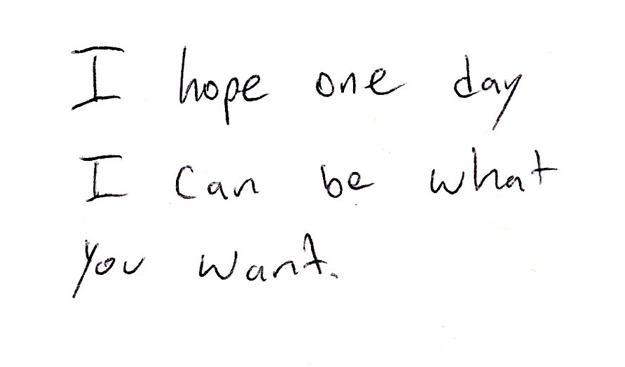 I hope one day
I can be what
you want.